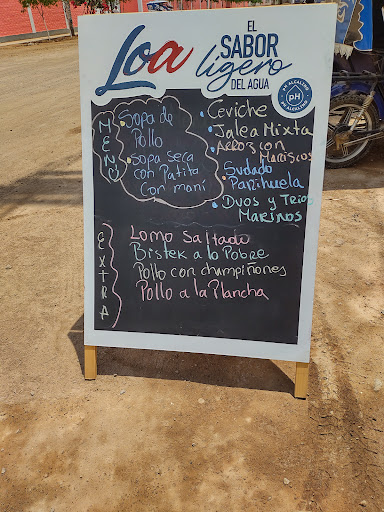 Loa
EL
SABOR
ligero
DEL AGUA
pH ALCALINO
pH
pH ALCALINO
MENÚ
Sopa de
Pollo
Sopa seca
con Patita
con maní
Ceviche
Jalea Mixta
Arroz con
Mariscos
Sudado
Parihuela
Duos y Trios
Marinos
EXTRA
Lomo Saltado
Bistek a lo Pobre
Pollo con champiñones
Pollo a la Plancha